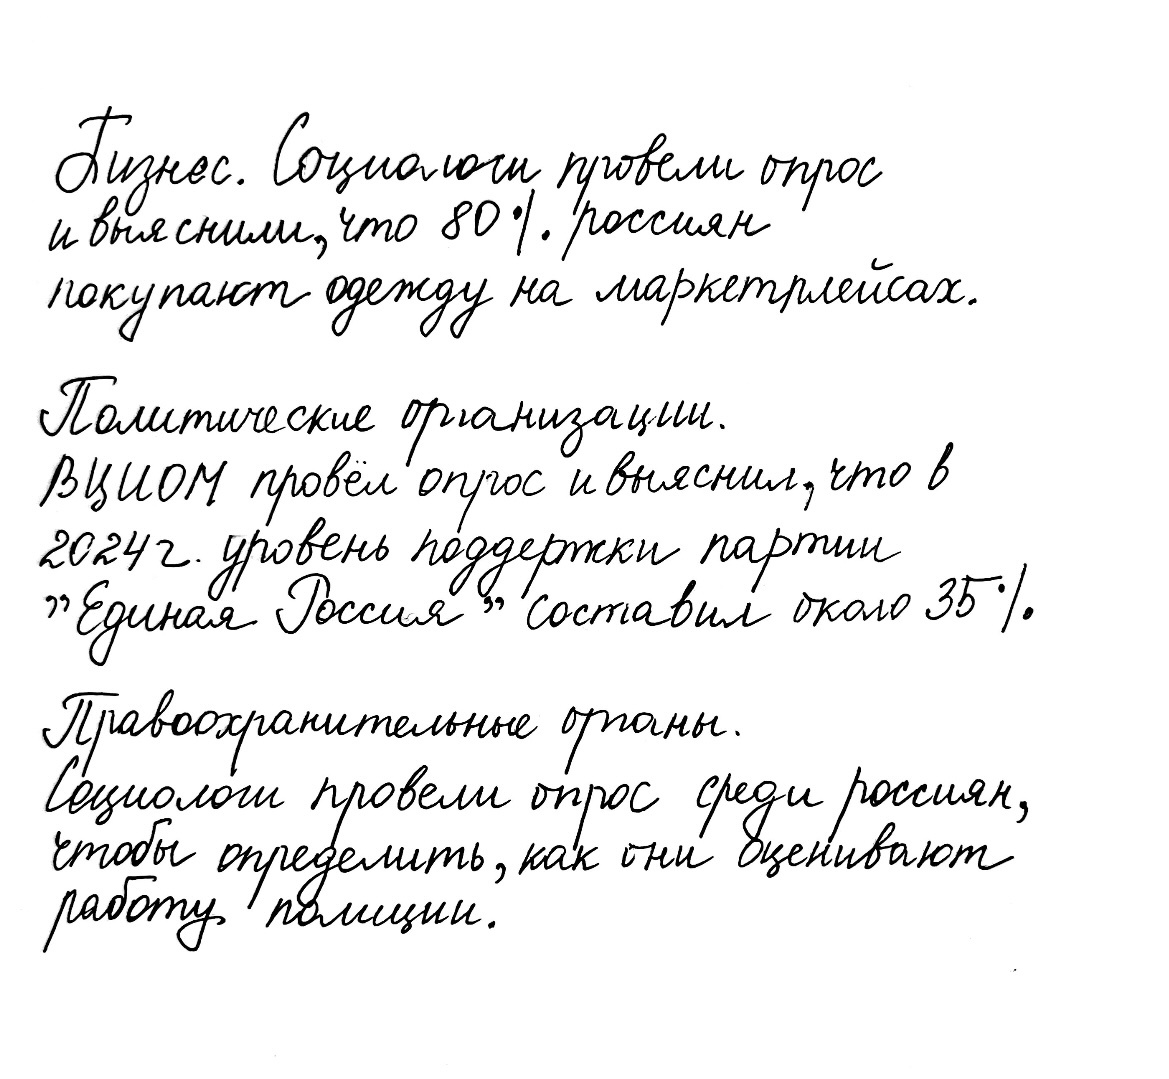 Бизнес. Социологи провели опрос
и выяснили, что 80%. россиян
покупают одежду на маркетплейсах.
Политические организации.
ВЦИОМ провёл опрос и выяснил, что в
2024 г. уровень поддержки партии
"Единая Россия" составил около 35%.
Правоохранительные органы.
Социологи провели опрос среди россиян,
чтобы определить, как они оценивают
работу полиции.